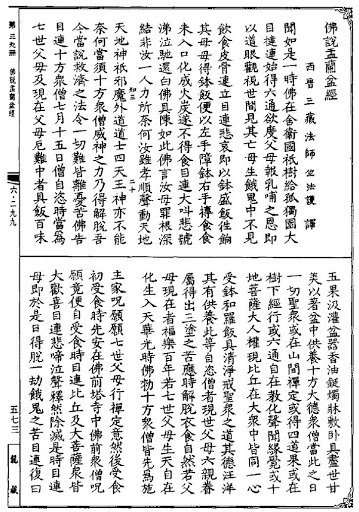 佛說盂蘭盆經
西晉三藏法師竺法護譯
聞如是一時佛在舍衞國祇樹給孤獨園大
目揵連始得六通欲度父母報乳哺之恩即
以道眼觀視世間見其亡母生餓鬼中不見
飲食皮骨連立目連悲哀即以鉢盛飯往餉
其母母得鉢飯便以左手障鉢右手摶食食
未入口化成火炭遂不得食目連大叫悲號
涕泣馳還白佛具陳如此佛言汝母罪根深
結非汝一人力所奈何汝雖孝順聲動天地
天神地祇邪魔外道道士四天王神亦不能
奈何當須十方衆僧威神之力乃得解脫吾
今當說救濟之法令一切難皆離憂苦佛告
目連十方衆僧七月十五日僧自恣時當爲
七世父母及現在父母厄難中者具飯百味
五果汲灌盆器香油鋌燭牀敷臥具盡世甘
美以著盆中供養十方大德衆僧當此之日
一切聖衆或在山間禪定或得四道果或在
樹下經行或六通自在教化聲聞緣覺或十
地菩薩大人權現比丘在大衆中皆同一心
受鉢和羅飯具清淨戒聖衆之道其德汪洋
其有供養此等自恣僧者現世父母六親眷
屬得出三塗之苦應時解脫衣食自然若父
母現在者福樂百年若七世父母生天自在
化生入天華光時佛勅十方衆僧皆先爲施
主家呪願願七世父母行禪定意然後受食
初受食時先安在佛前塔寺中佛前衆僧呪
願竟便自受食時目連比丘及大菩薩衆皆
大歡喜目連悲啼泣聲釋然除滅是時目連
母即於是日得脫一劫餓鬼之苦目連復白
第三九冊 佛說盂蘭盆經
六・二九九
五七三
龍藏